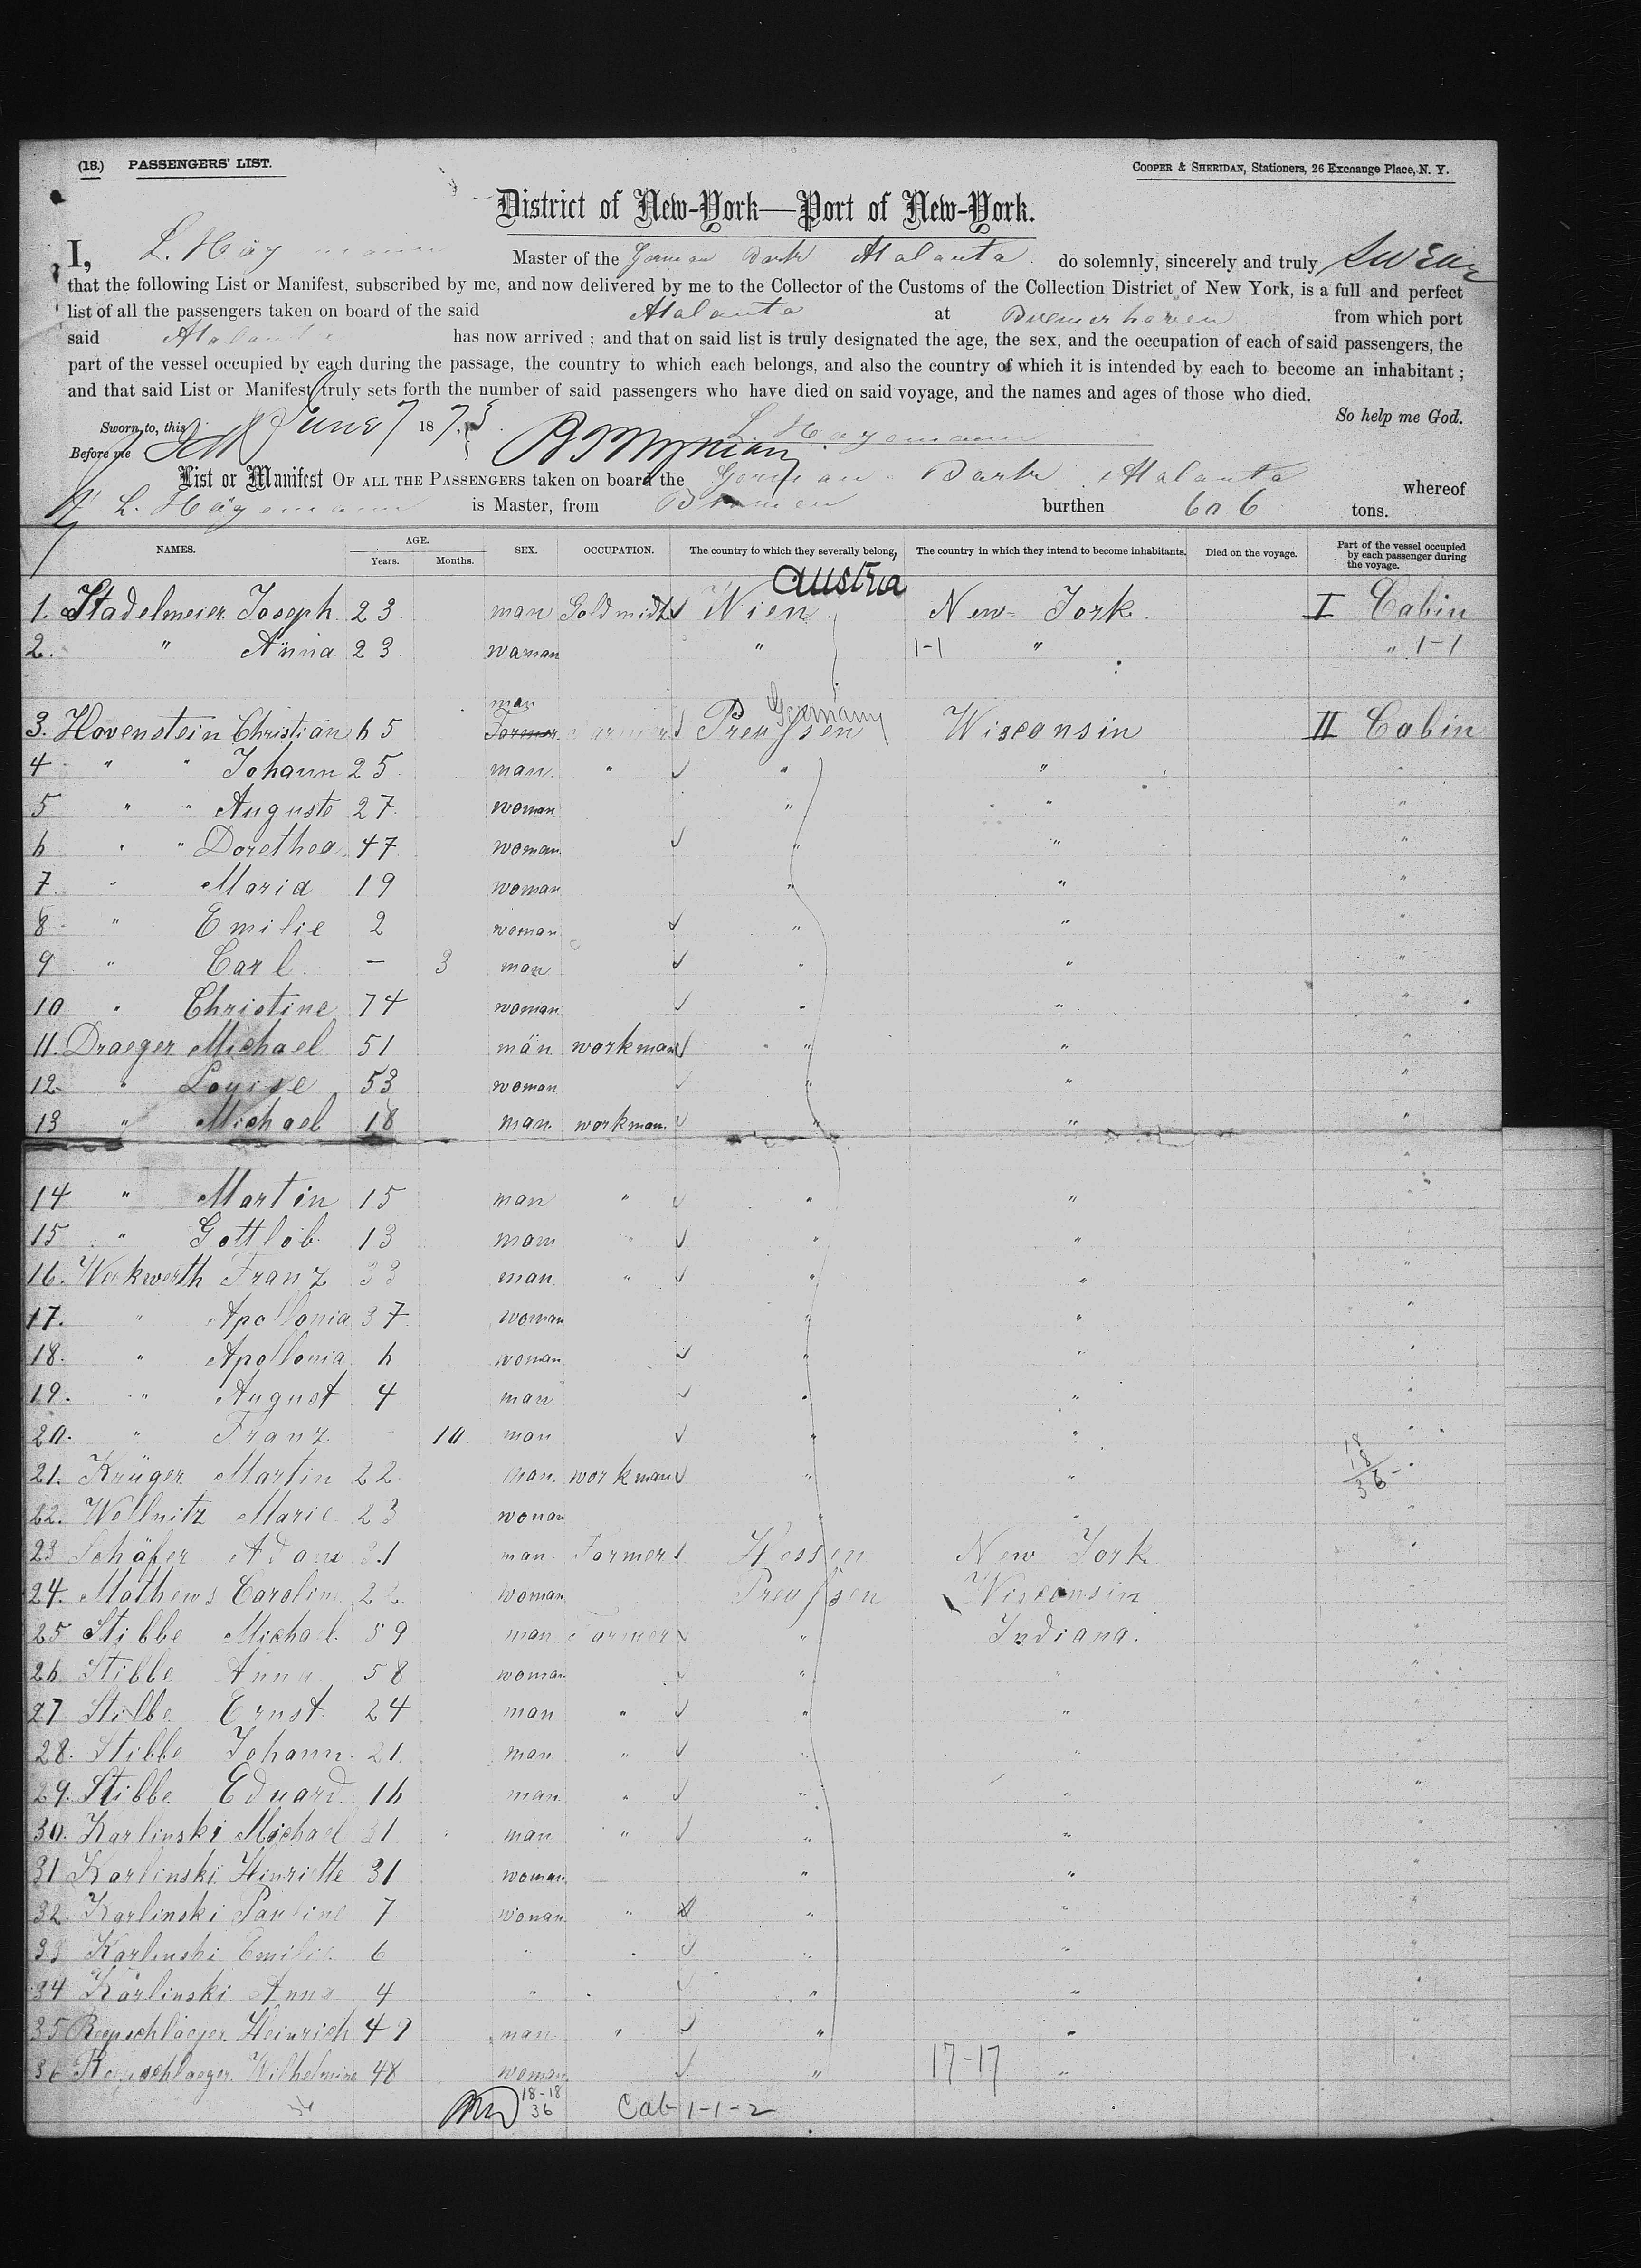 (18.) PASSENGERS' LIST.
COOPER & SHERIDAN, Stationers, 26 Exchange Place, N. Y.
District of New-York—Port of New-York.
I, L. Häyemann Master of the German Bark Atalanta do solemnly, sincerely and truly swear
that the following List or Manifest, subscribed by me, and now delivered by me to the Collector of the Customs of the Collection District of New York, is a full and perfect
list of all the passengers taken on board of the said Atalanta at Bremerhaven from which port
said Atalanta has now arrived ; and that on said list is truly designated the age, the sex, and the occupation of each of said passengers, the
part of the vessel occupied by each during the passage, the country to which each belongs, and also the country of which it is intended by each to become an inhabitant ;
and that said List or Manifest truly sets forth the number of said passengers who have died on said voyage, and the names and ages of those who died.
So help me God.
Sworn to, this June 1873
Before me L. Hägemann
List or Manifest OF ALL THE PASSENGERS taken on board the German Bark Atalanta whereof
L. Hägemann is Master, from Bremen burthen 606 tons.
NAMES. AGE. Years. Months. SEX. OCCUPATION. The country to which they severally belong, The country in which they intend to become inhabitants. Died on the voyage. Part of the vessel occupied by each passenger during the voyage.
Austria
1. Stadelmeier Joseph 23 man Goldsmidt Wien New-York. I Cabin
2. " Anna 23 woman " 1-1 " " 1-1
man Germany
3. Hovenstein Christian 65 Farmer Farmer Preußen Wisconsin II Cabin
4 " " Johann 25 man. " " " "
5 " " Auguste 27 woman " " "
6 " " Dorethea 47 woman " " "
7 " Maria 19 woman " " "
8 " Emilie 2 woman " " "
9 " Carl. – 3 man " " "
10 " Christine 74 woman " " "
11. Draeger Michael 51 man workman " " "
12 " Louise 53 woman " " "
13 " Michael 18 man workman " " "
14 " Martin 15 man " " " "
15 " Gottlob 13 man " " " "
16. Weckwerth Franz 33 man " " " "
17. " Apollonia 37 woman " " "
18. " Apollonia 6 woman " " "
19. " August 4 man " " "
20. " Franz – 10 man " " "
18
18
36
21. Krüger Martin 22 man workman " " "
22. Wollnitz Marie 23 woman " " "
23 Schäfer Adam 31 man Farmer Hessen New York "
24. Mathews Caroline 22 woman Preußen Wisconsin "
25 Stibbe Michael 59 man Farmer " Indiana. "
26 Stibbe Anna 58 woman " " "
27 Stibbe Ernst 24 man " " " "
28. Stibbe Johann 21 man " " " "
29. Stibbe Eduard 16 man " " " "
30. Karlinski Michael 31 man " " " "
31 Karlinski Henriette 31 woman " " "
32 Karlinski Pauline 7 woman " " " "
33 Karlinski Emilie 6 " " " " "
34 Karlinski Anna 4 " " " " "
35 Reepschläger Heinrich 49 man " " " "
36 Reepschlaeger Wilhelmine 48 woman " 17-17 " "
18-18
36 Cab 1-1-2